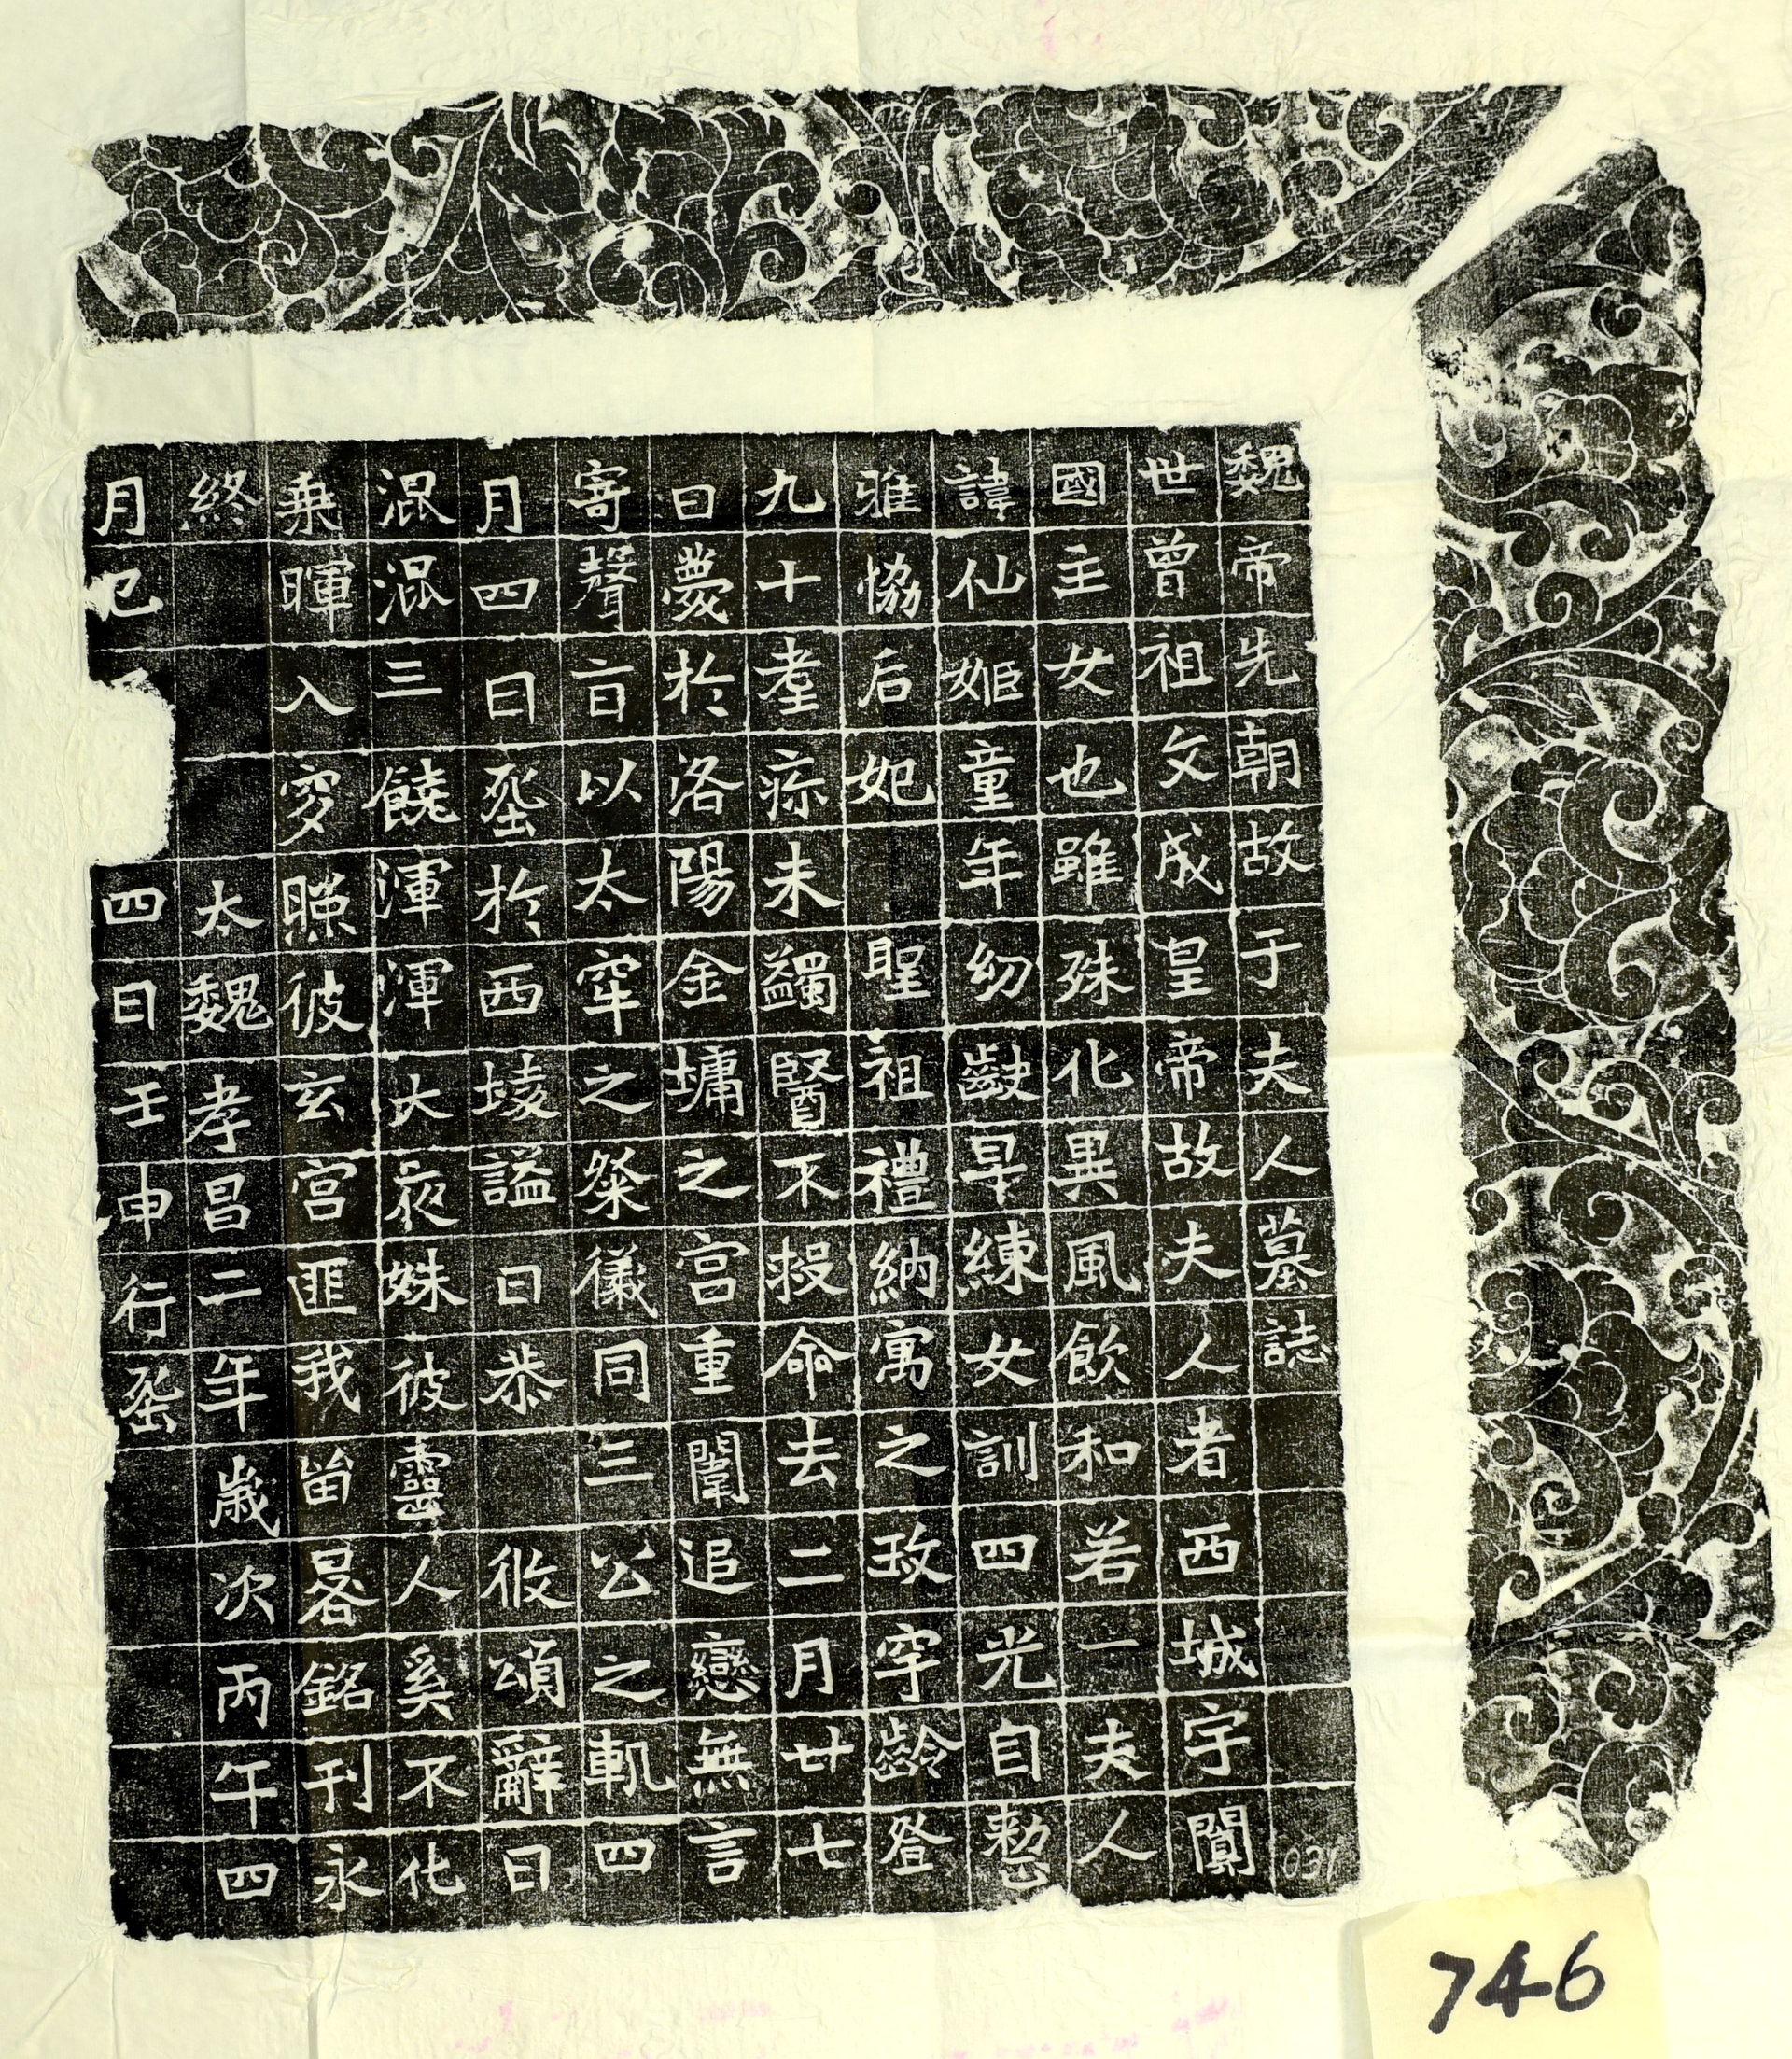 魏帝先朝故于夫人墓誌
世曾祖文成皇帝故夫人者西城宇闐
國主女也雖殊化異風飲和若一夫人
諱仙姬童年幼齔早練女訓四光自慗
雅協后妃聖祖禮納寓之玫穹齡登
九十耋疹未蠲醫不投命去二月廿七
日薨於洛陽金墉之宮重闈追戀無言
寄聲旨以太牢之祭儀同三公之軌四
月四日葬於西陵謚曰恭攸頌辭曰
混混三饒渾渾大夜姝彼靈人奚不化
乘暉入穸曖彼玄宮匪我留晷銘刊永
終太魏孝昌二年歲次丙午四
月己四日壬申行葬
031
746